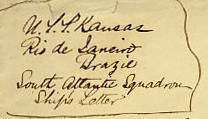 U.S.S. Kansas
Rio de Janeiro
Brazil
South Atlantic Squadron
Ship's Letter